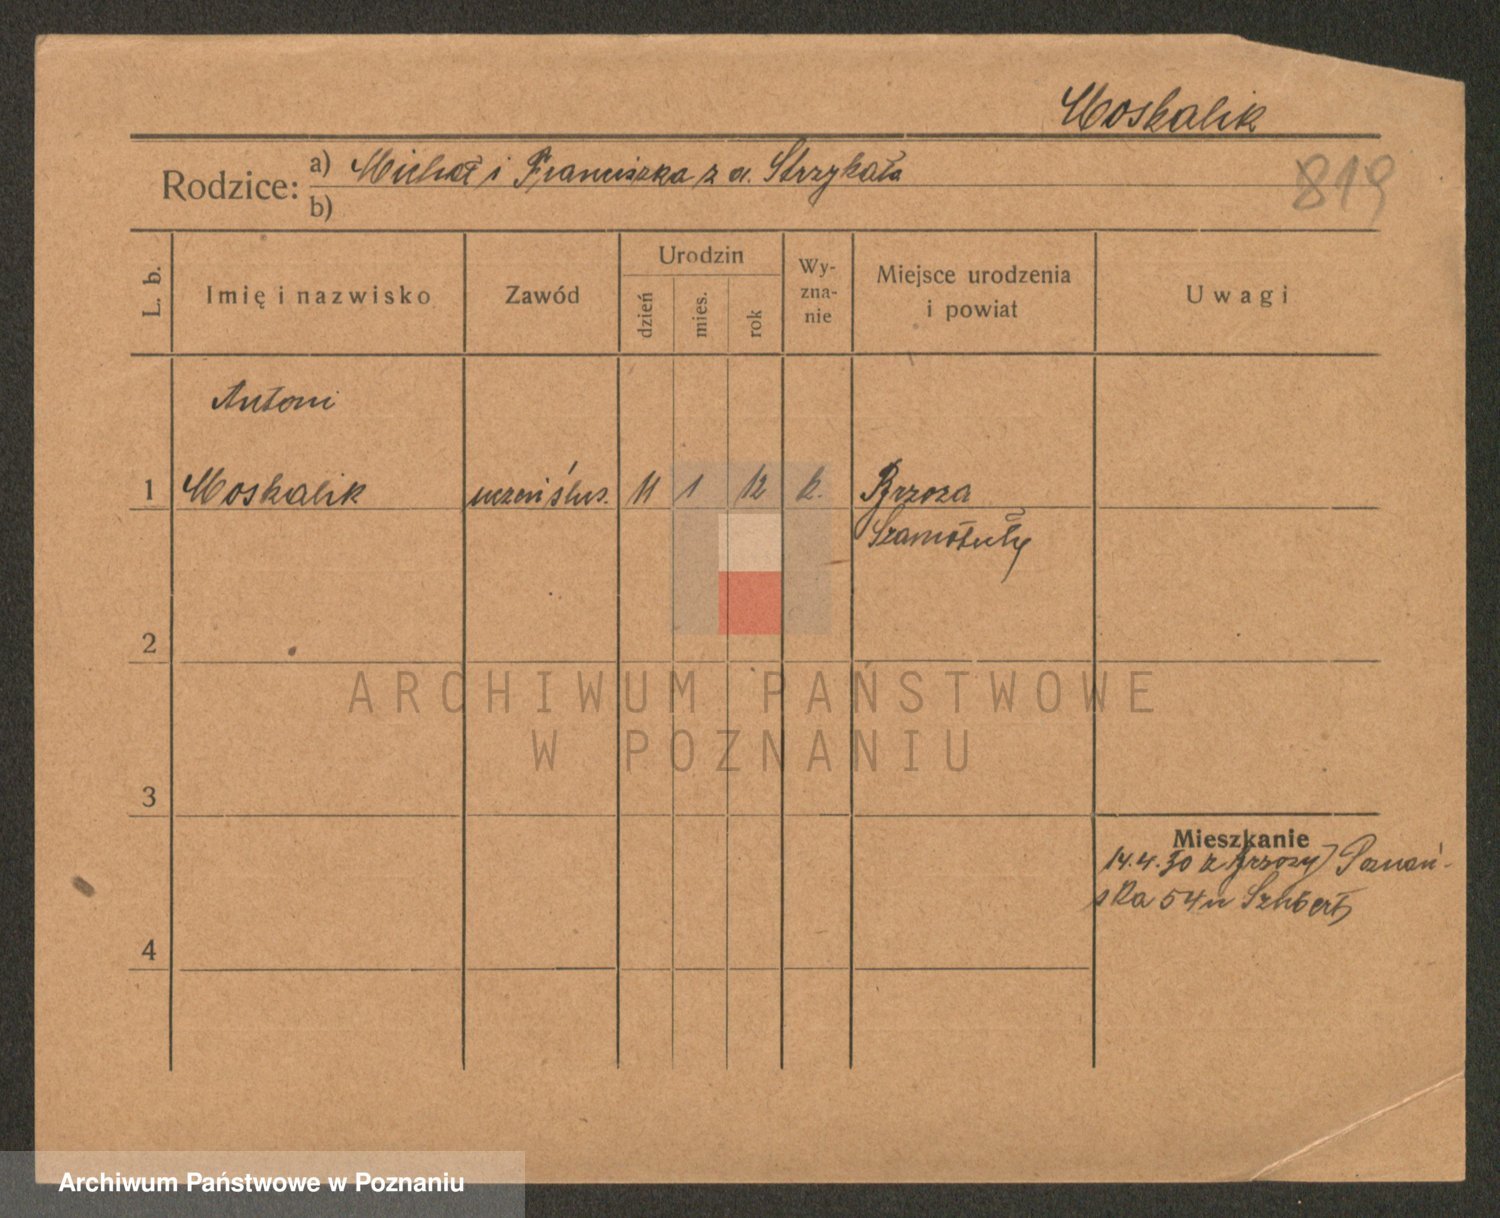 Moskalik
819
Rodzice: a) Michał i Franciszka z d. Strzykała
b)
L. b. Imię i nazwisko Zawód Urodzin dzień mies. rok Wy-zna-nie Miejsce urodzenia i powiat Uwagi
Antoni
1 Moskalik uczeń ślus. 11 1 12 k. Brzoza
Szamotuły
2
ARCHIWUM PAŃSTWOWE
W POZNANIU
3
Mieszkanie
14.4.30 z Brzozy) Poznań-
ska 54 u
4
Archiwum Państwowe w Poznaniu